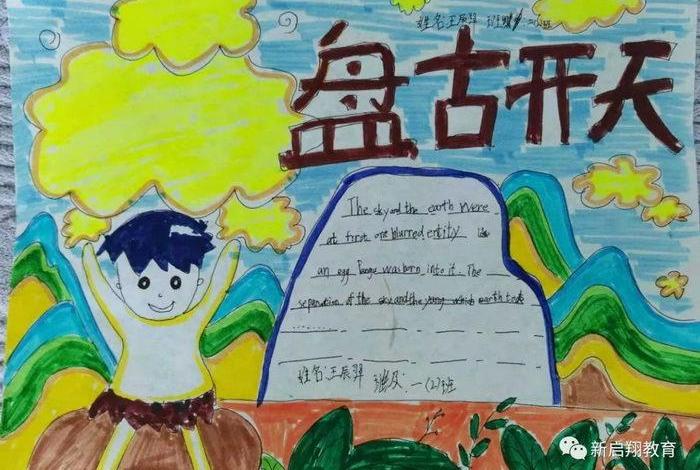 姓名:王辰羿 班级:二班
盘古开天
The sky and the earth were
at first one blurred entity like
an egg Pangu was born into it. The
separation of the sky and the yang which earth took
姓名:王辰羿 班级:一(2)班
新启翔教育